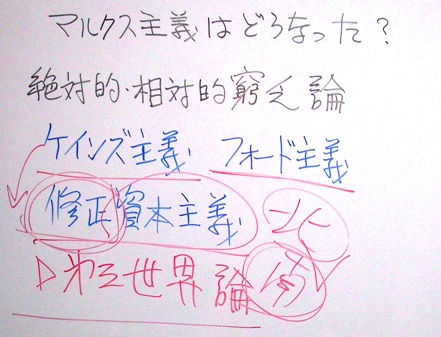 マルクス主義はどうなった?
絶対的・相対的窮乏論
ケインズ主義 フォード主義
修正資本主義
第三世界論